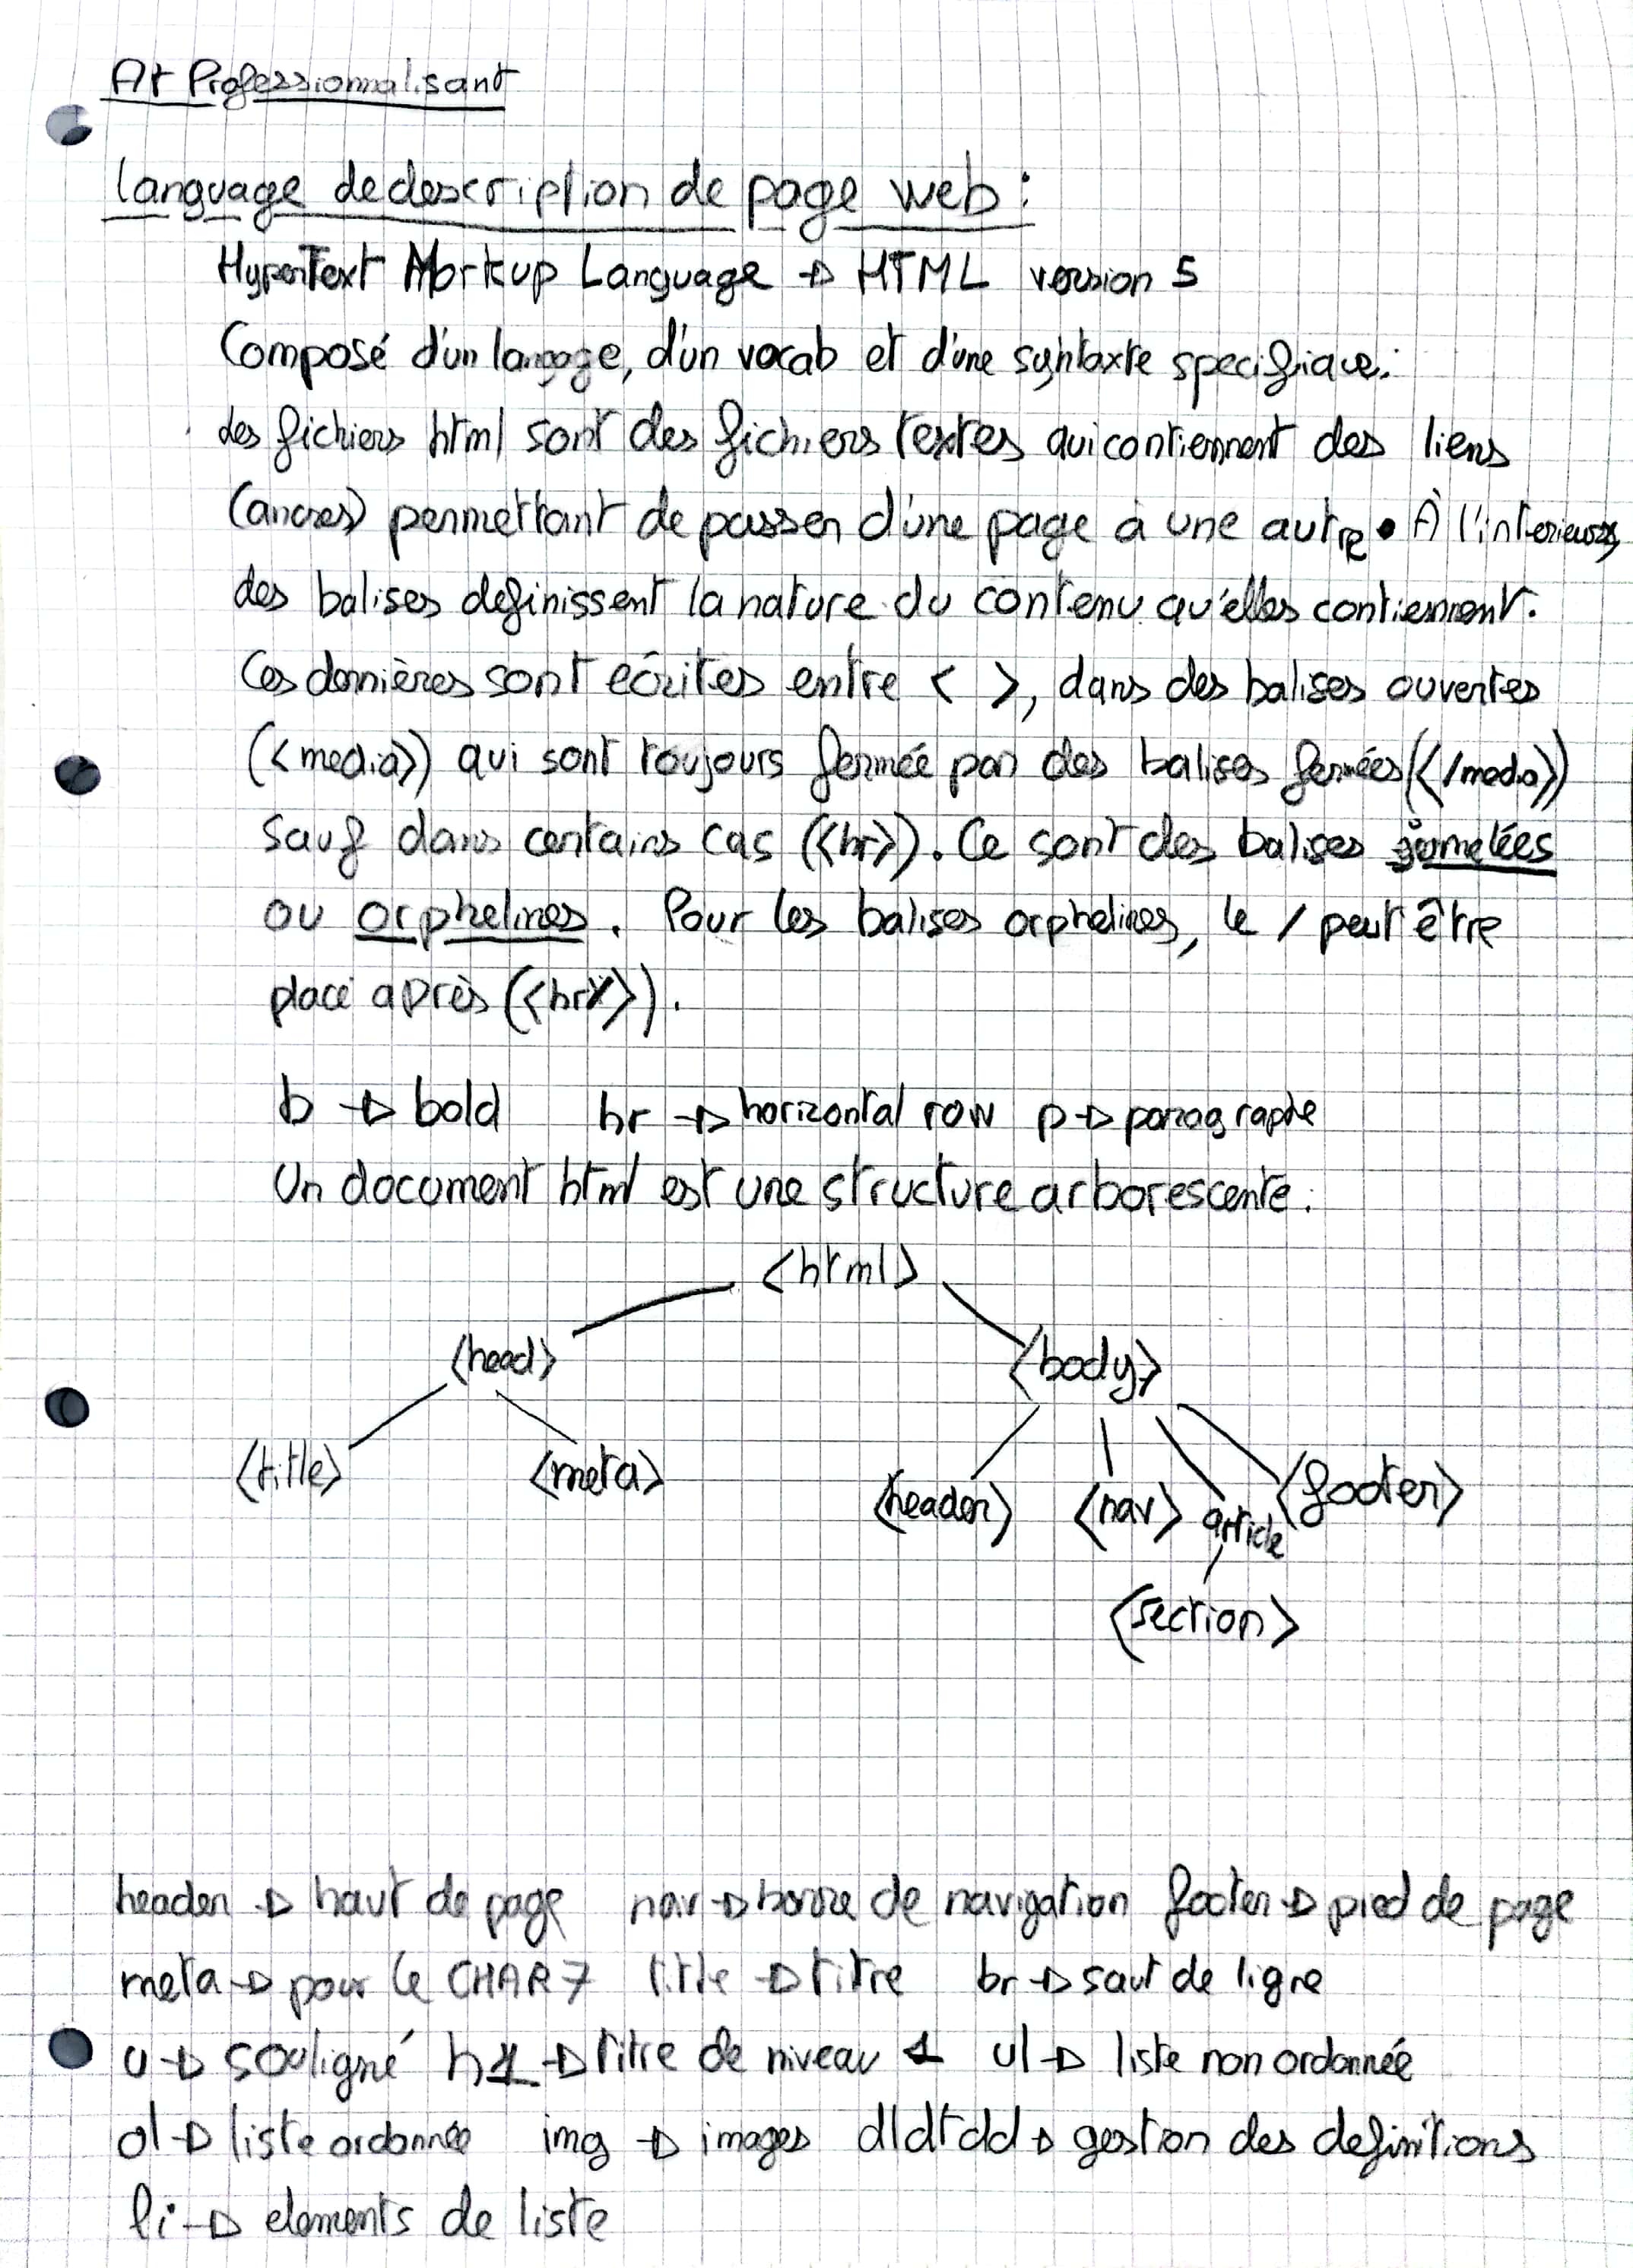 At Professionnalisant
Language de description de page web :
HyperText Markup Language → HTML version 5
Composé d'un langage, d'un vocab et d'une syntaxte specifique.
des fichiers html sont des fichiers textes qui contiennent des liens
(ancres) permettant de passer d'une page à une autre. À l'interieur,
des balises definissent la nature du contenu qu'elles contiennent.
Ces dernières sont ecrites entre < >, dans des balises ouvertes
(<media>) qui sont toujours fermée par des balises fermées (</media>)
sauf dans certains cas (<hr>). Ce sont des balises jumelées
ou orphelines. Pour les balises orphelines, le / peut être
placé après (<hr/>).
b → bold hr → horizontal row p → paragraphe
Un document html est une structure arborescente :
<html>
<head> <body>
<title> <meta> <header> <nav> article <footer>
<section>
header → haut de page nav → barre de navigation footer → pied de page
meta → pour le CHAR7 title → titre br → saut de ligne
u → souligné h1 → titre de niveau 1 ul → liste non ordonnée
ol → liste ordonnée img → images dldtdd → gestion des definitions
li → elements de liste